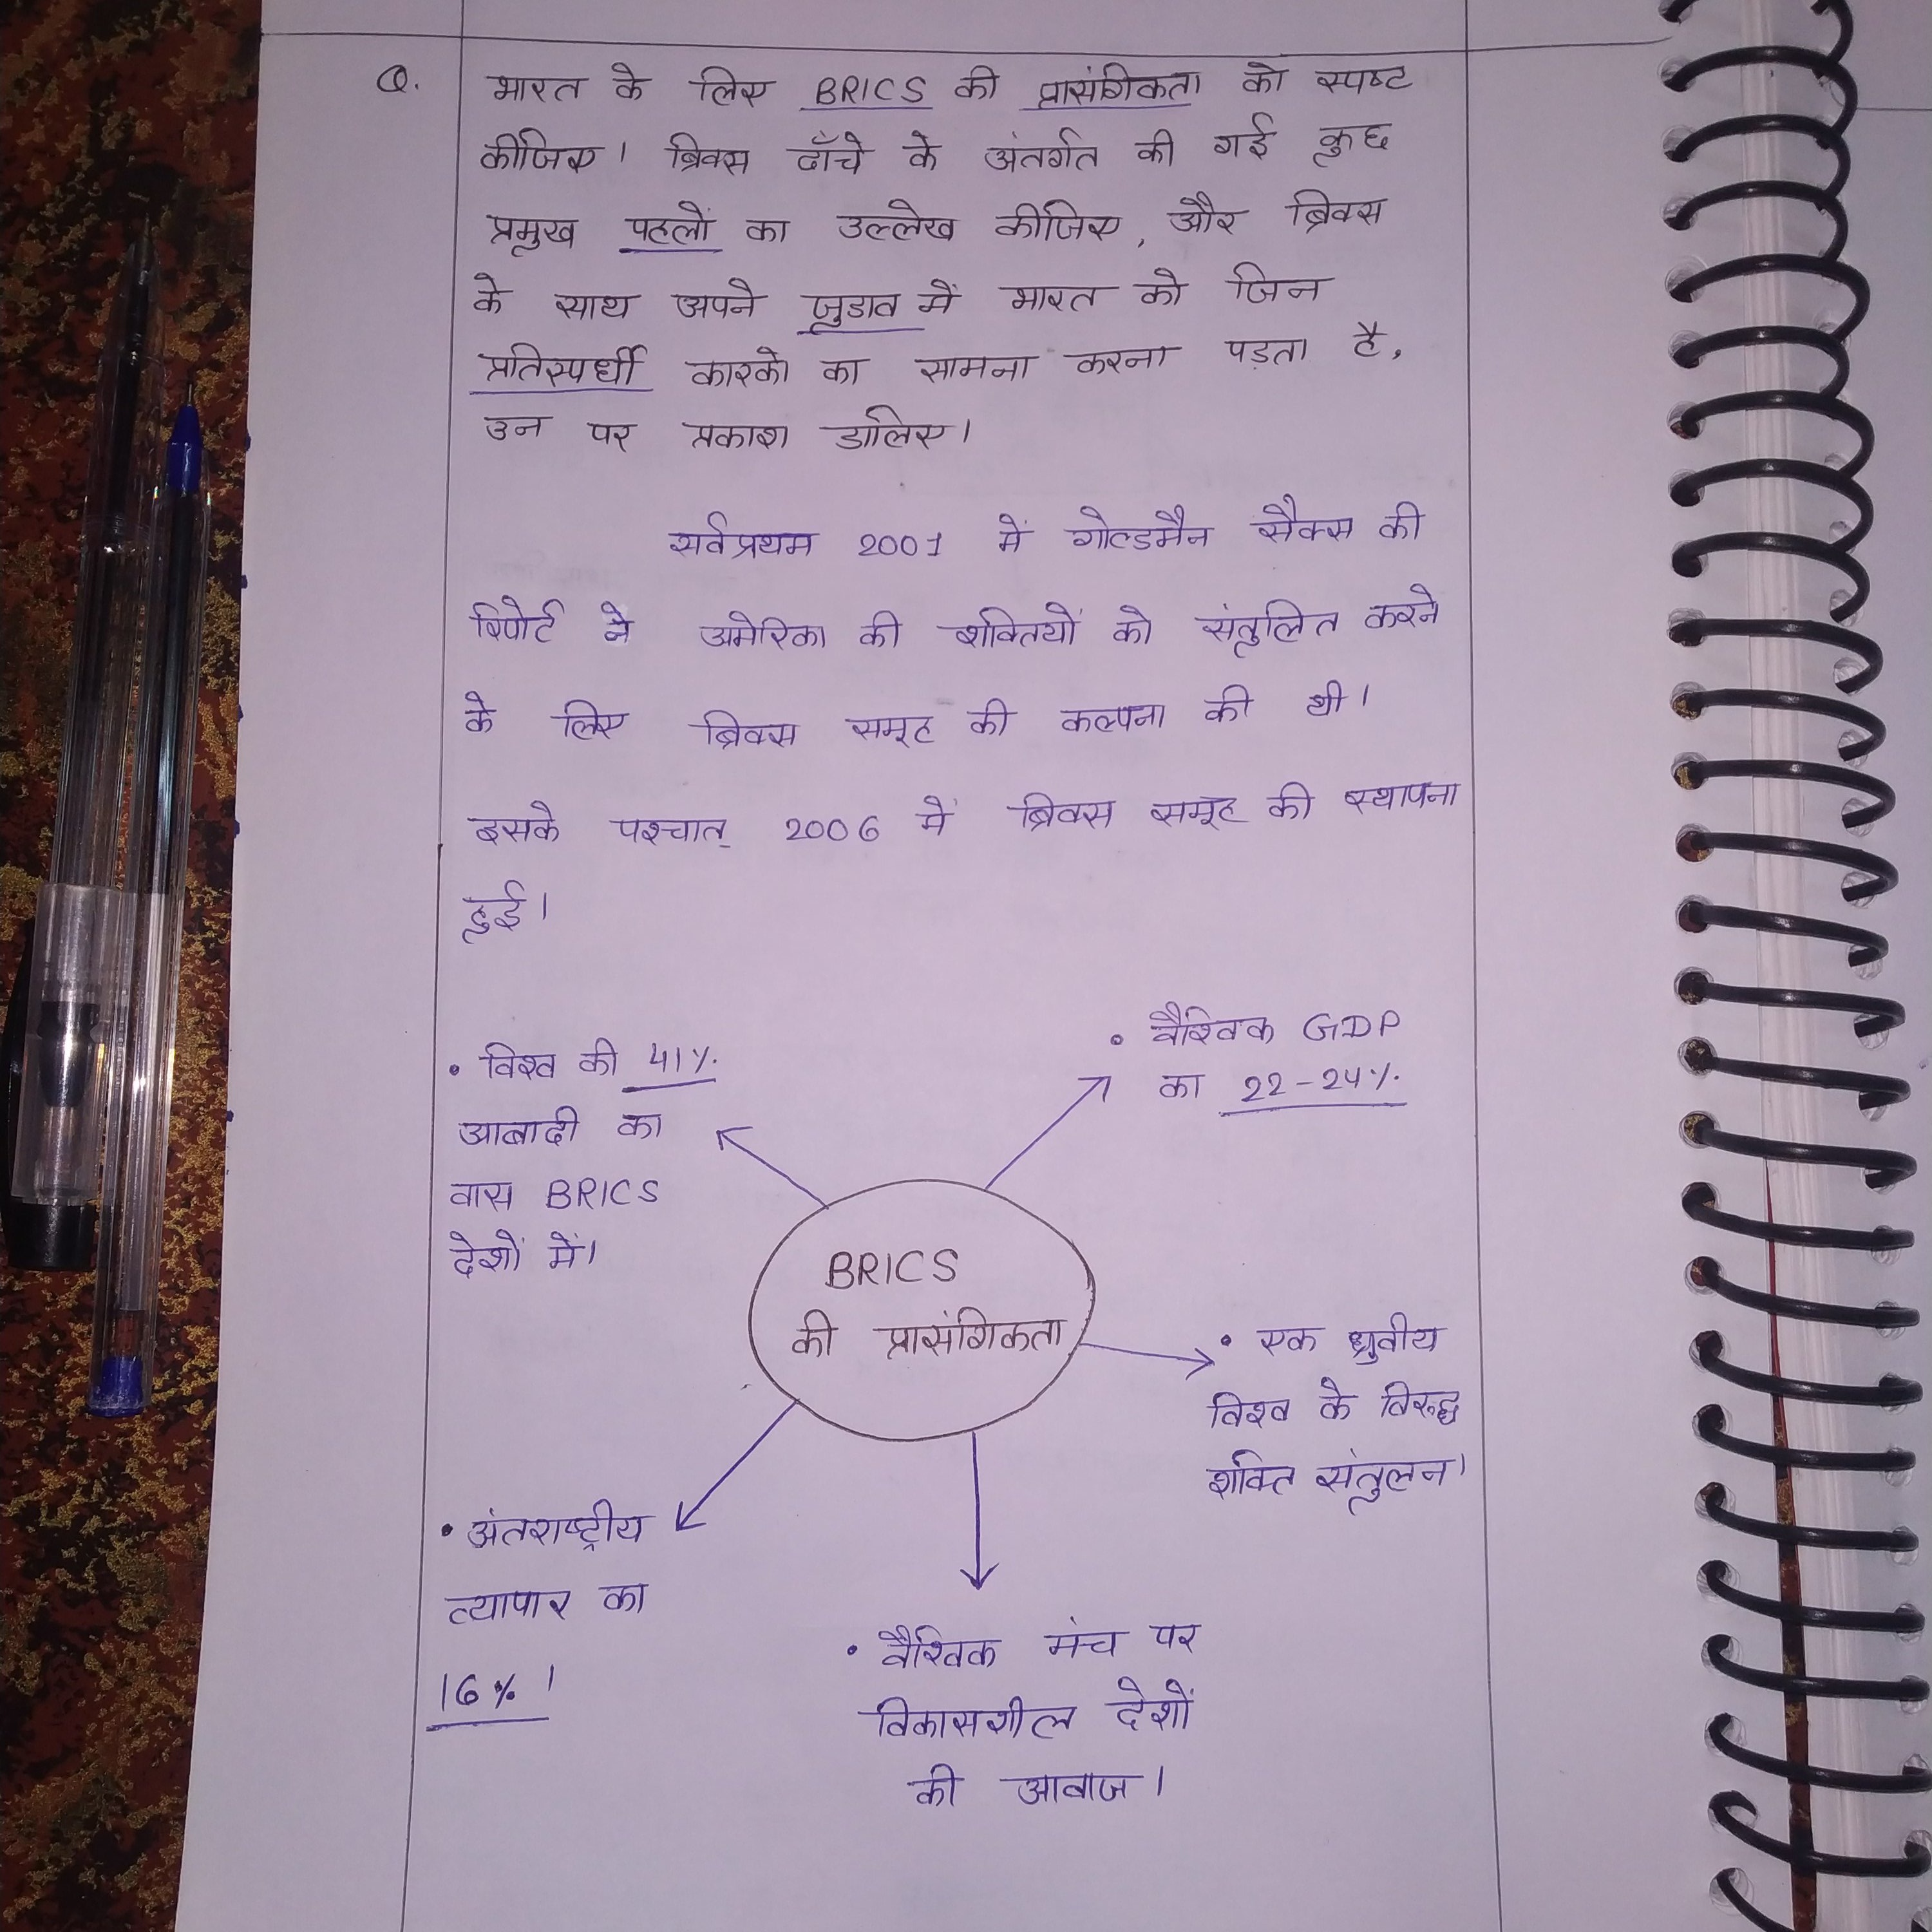 Q. भारत के लिए BRICS की प्रासंगिकता को स्पष्ट
कीजिए। ब्रिक्स ढाँचे के अंतर्गत की गई कुछ
प्रमुख पहलों का उल्लेख कीजिए, और ब्रिक्स
के साथ अपने जुडाव में भारत को जिन
प्रतिस्पर्धी कारको का सामना करना पड़ता है,
उन पर प्रकाश डालिए।
सर्वप्रथम 2001 में गोल्डमैन सैक्स की
रिपोर्ट ने अमेरिका की शक्तियों को संतुलित करने
के लिए ब्रिक्स समूह की कल्पना की थी।
इसके पश्चात् 2006 में ब्रिक्स समूह की स्थापना
हुई।
• विश्व की 41%
आबादी का
वास BRICS
देशों में।
• वैश्विक GDP
का 22-24%
BRICS
की प्रासंगिकता
• एक ध्रुवीय
विश्व के विरुद्ध
शक्ति संतुलन।
• अंतराष्ट्रीय
व्यापार का
16%।
• वैश्विक मंच पर
विकासशील देशों
की आवाज।